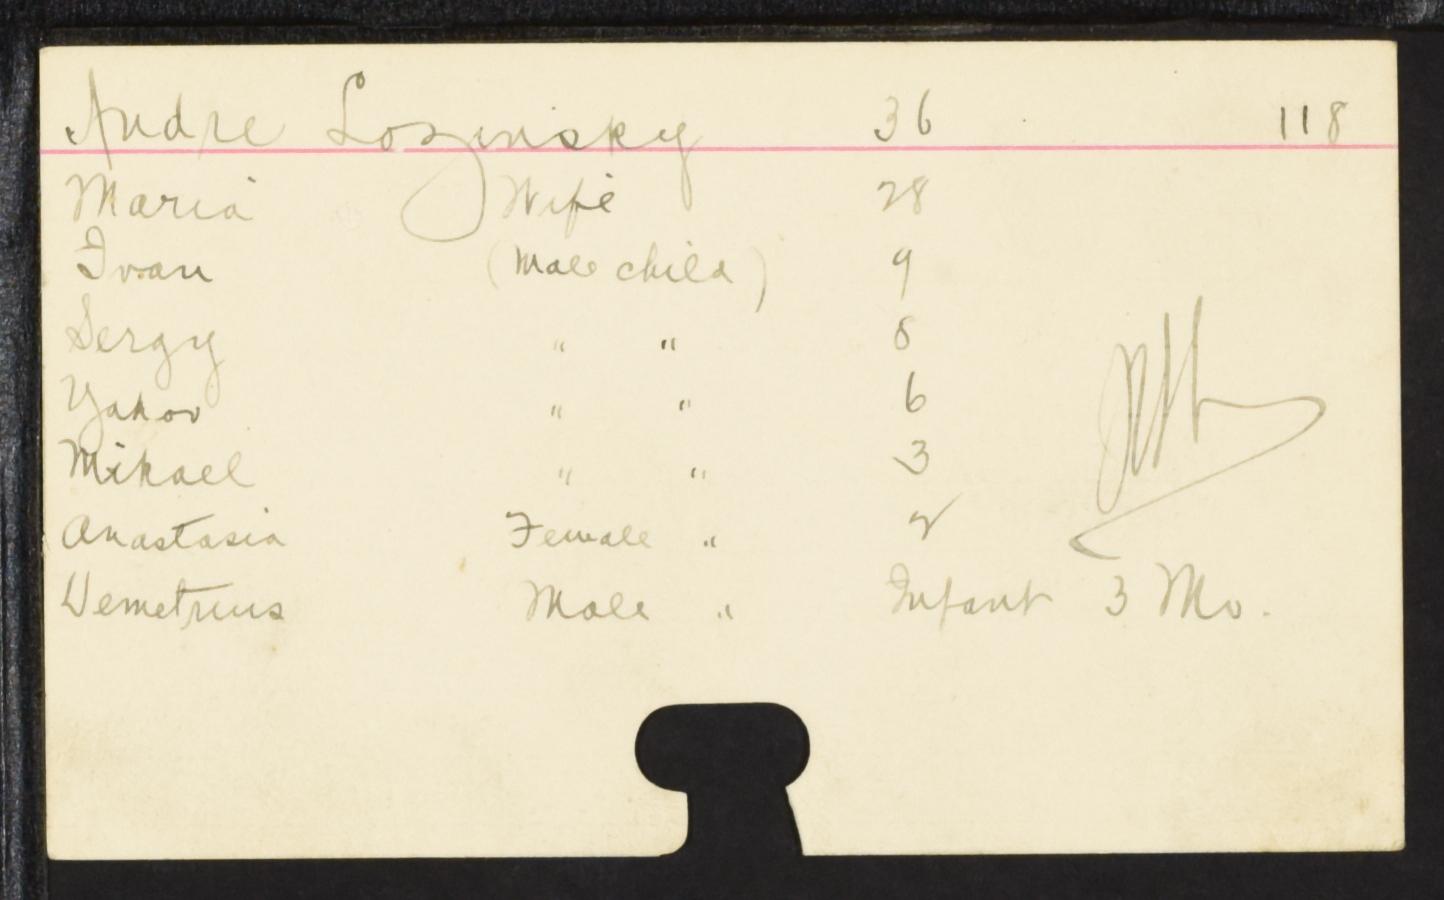 Andre Lozinsky 36 118
Maria Wife 28
Ivan (Male child) 9
Sergy " " 8
Yakov " " 6
Mikael " " 3
Anastasia Female " 2
Demetrius Male " Infant 3 Mo.